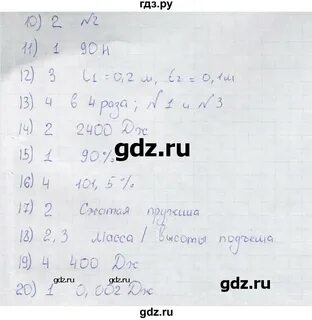 гдз.ру
10) 2 №2
11) 1 90Н
12) 3 l1 = 0,2 м, l2 = 0,1м
13) 4 в 4 раза; №1 и №3
14) 2 2400 Дж
gdz.ru
15) 1 90%
16) 4 101,5 %
17) 2 Сжатая пружина
18) 2,3 Масса / высоты подъема
19) 4 400 Дж
20) 1 0,002 Дж
gdz.ru
gdz.ru
gdz.ru